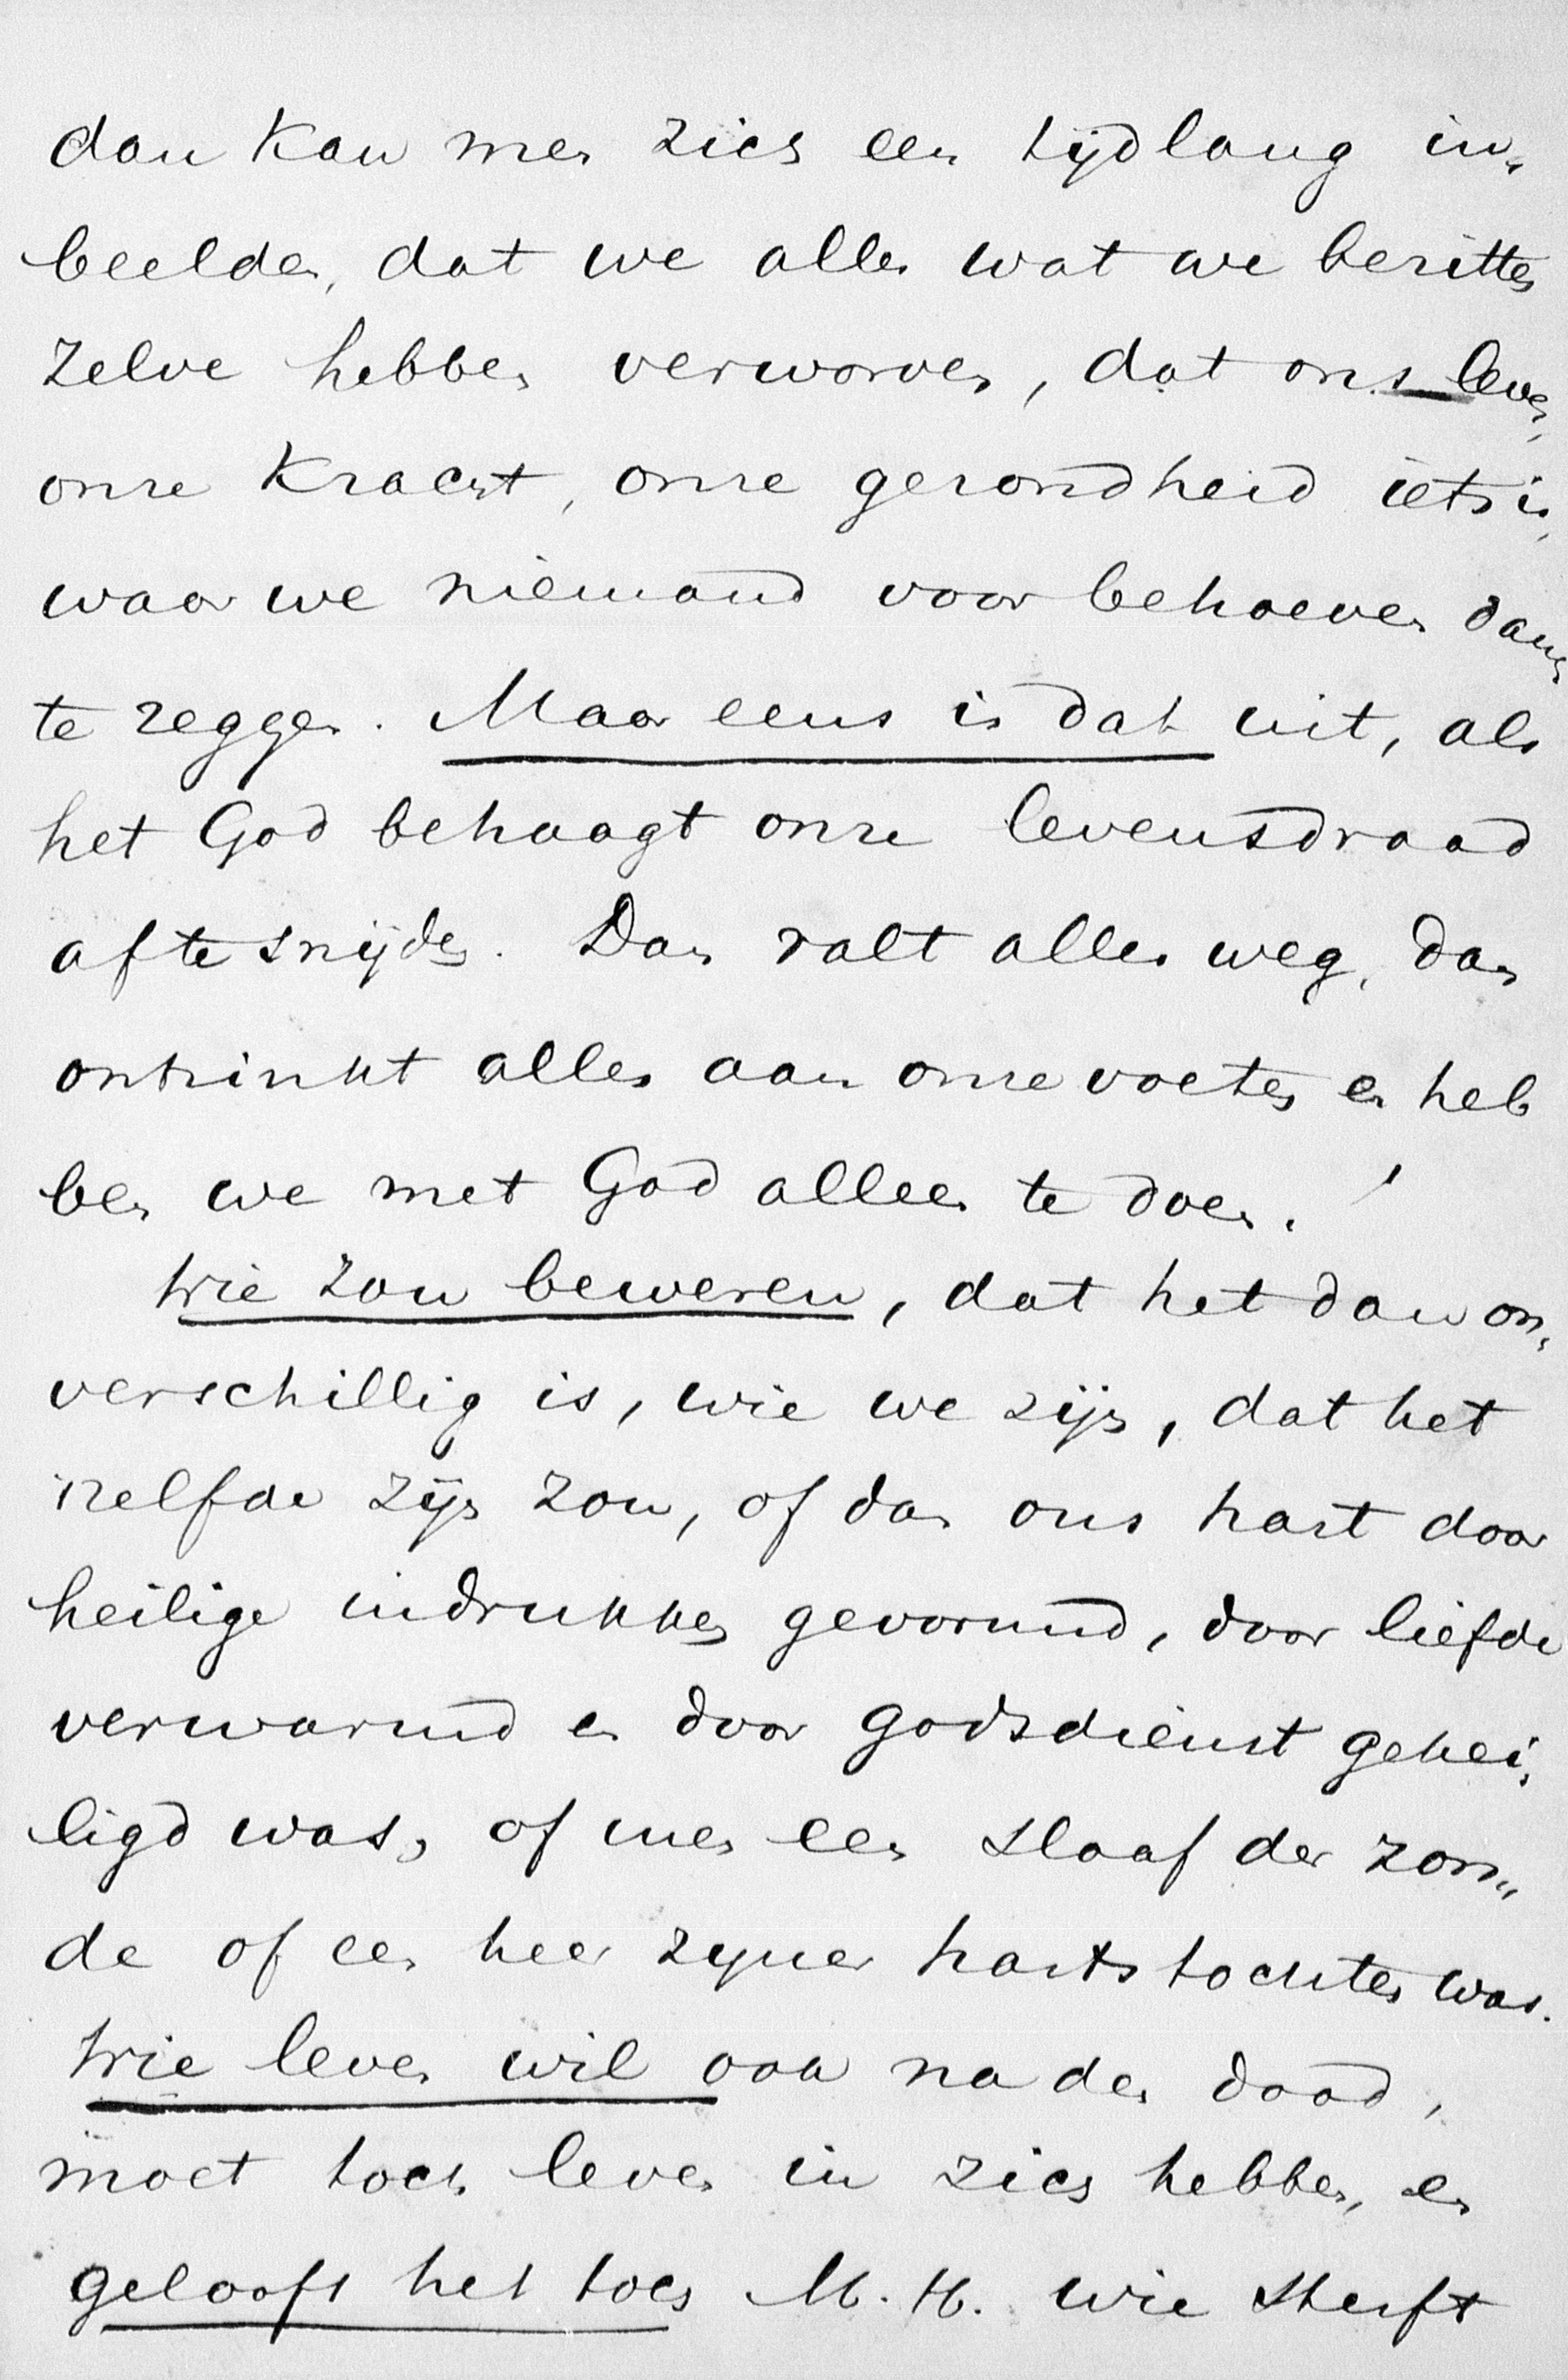 dan kan men zich een tijdlang in-
beelden, dat we alles wat we bezitten
zelve hebben verworven, dat ons leven,
onze kracht, onze gezondheid iets is,
waar we niemand voor behoeven dank
te zeggen. Maar eens is dat uit, als
het God behaagt onze levensdraad
af te snijden. Dan valt alles weg, dan
ontzinkt alles aan onze voeten en heb
ben we met God alleen te doen.
Wie zou beweren, dat het dan on-
verschillig is, wie we zijn, dat het
'zelfde zijn zou, of dan ons hart door
heilige indrukken gevormd, door liefde
verwarmd en door godsdienst gehei-
ligd was, of men een slaaf der zon-
de of een heer zyner hartstochten was.
Wie leven wil ook na den dood,
moet toch leven in zich hebben, en
gelooft het toch M. H. wie sterft